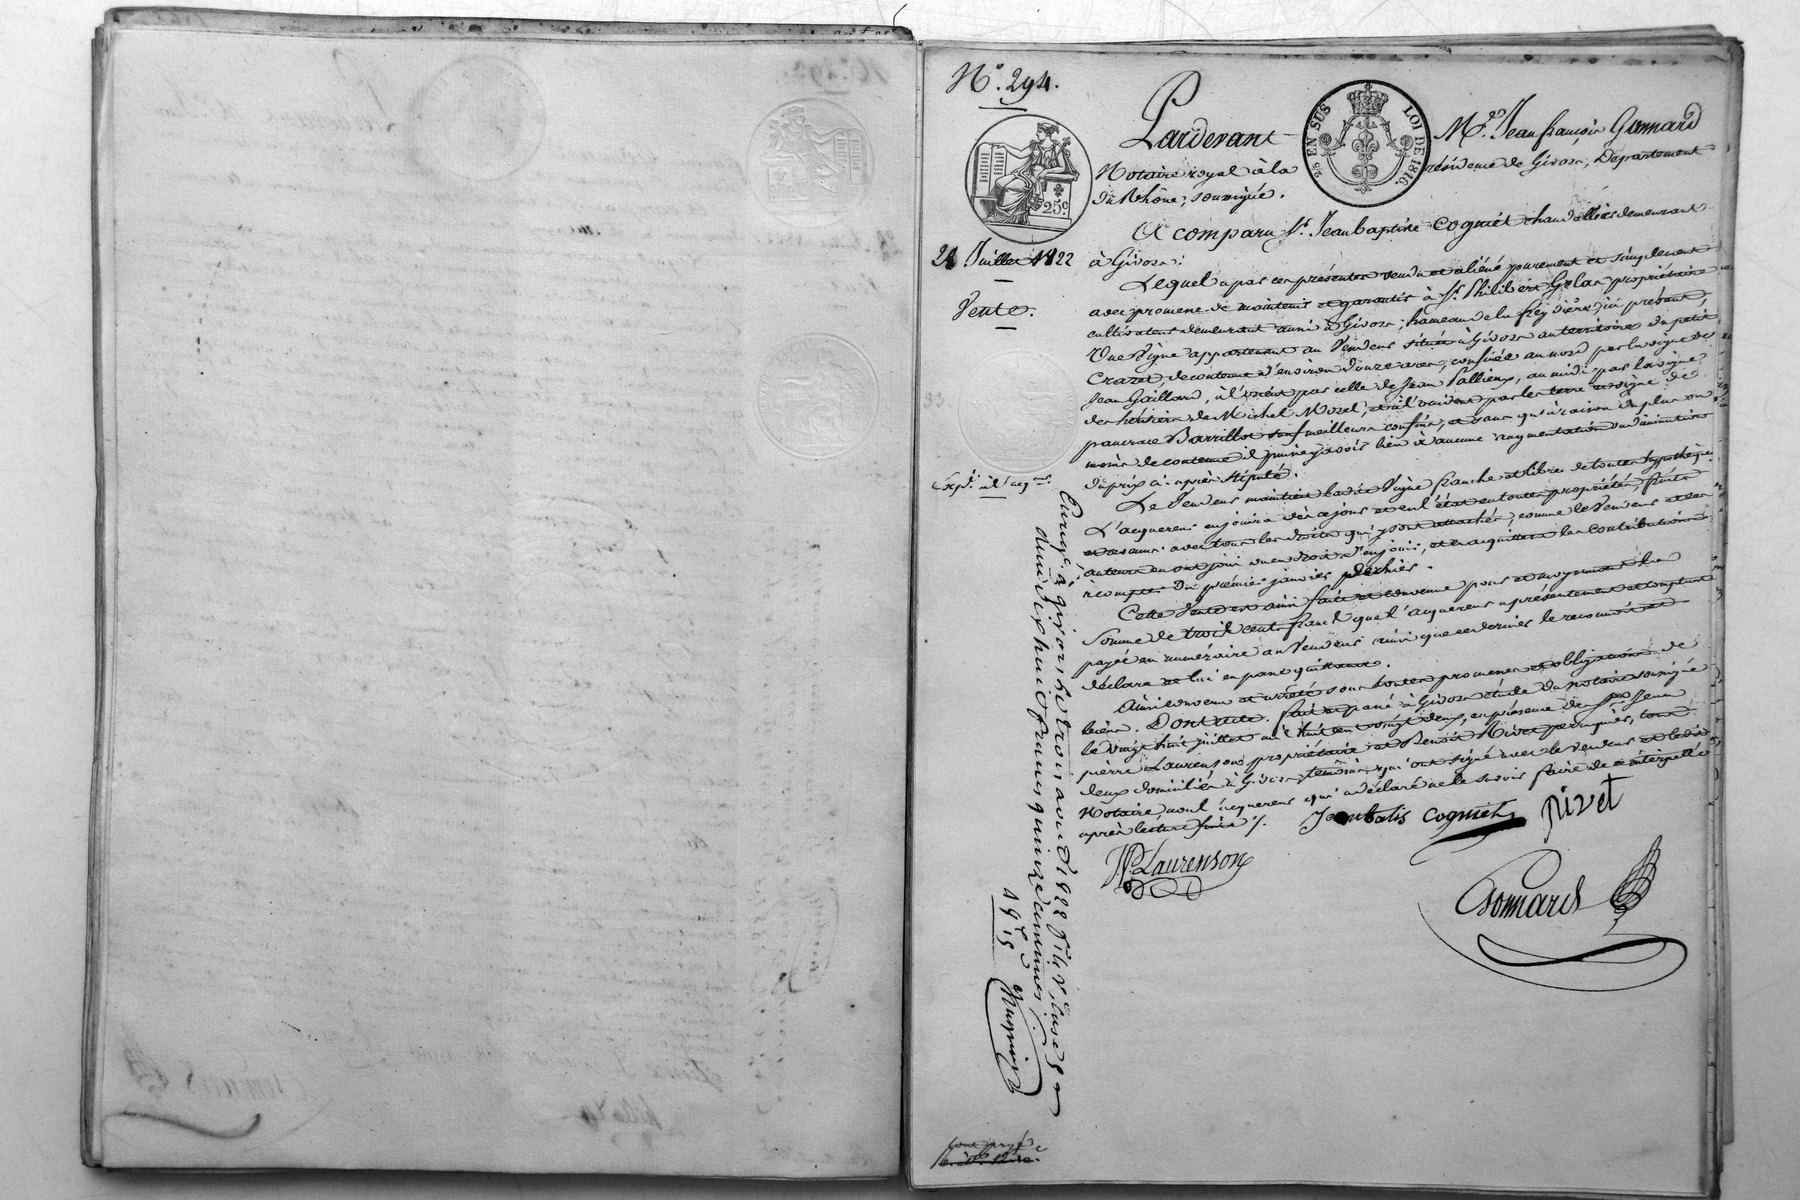 N.º 294.
25 EN SUS LOI DE 1816.
25.c
28 Juillet 1822
Vente.
Pardevant M.e Jean françois Gonnard
Notaire royal à la résidence de Givors, Département
du Rhône, soussigné.
A comparu S.r Jean baptiste Cogniet demeurant
à Givors;
Lequel a par ces présentes vendu et aliéné purement et simplement
avec promesse de maintenir et garantir à S.r Philibert Gelas propriétaire
cultivateur demeurant aussi à Givors, hameau de la freydière, ici présent,
Une Vigne appartenant au Vendeur située à Givors au territoire du petit
Crazet, de contenue d'environ douze ares, confinée au nord par la vigne de
Jean Gaillard, à l'orient par celle de Jean Pallieux, au midi par la vigne
des héritiers de Michel Morel, et à l'occident par les terre et vigne de
pancrace Barrillot sauf meilleurs confins, et sans qu'à raison du plus ou
moins de contenue il puisse y avoir lieu à aucune augmentation ou diminution
du prix ci-après stipulé.
Le Vendeur maintient ladite Vigne franche et libre de toutes hypothèques.
L'acquéreur en jouira dès ce jour et en l'état en toute propriété, fruits
et revenus avec tous les droits qui y sont attachés, comme le Vendeur et ses
auteurs en ont joui ou eu droit d'en jouir, et en acquittera les contributions
à compter du premier janvier dernier.
Cette Vente est ainsi faite et convenue pour et moyennant la
somme de trois cents francs que l'acquéreur a présentement et comptant
payée en numéraire au Vendeur ainsi que ce dernier le reconnoit et
déclare et lui en passe quittance.
Ainsi convenu et arrêté sous toutes promesses et obligations de
biens. Dont acte. fait et passé à Givors étude du notaire soussigné
le vingt huit juillet mil huit cent vingt deux, en présence des S.rs Jean
pierre Laurenson propriétaire et Benoît Rivet perruquier, tous
deux domiciliés à Givors, témoins qui ont signé avec le vendeur et ledit
Notaire, non l'acquéreur qui a déclaré ne le savoir faire de ce interpellé
après lecture faite ./.
Jean batis Cogniet
Rivet
JP Laurenson
Gonnard
Enreg.é à givors le trois aout 1822
dix huit francs quinze centimes